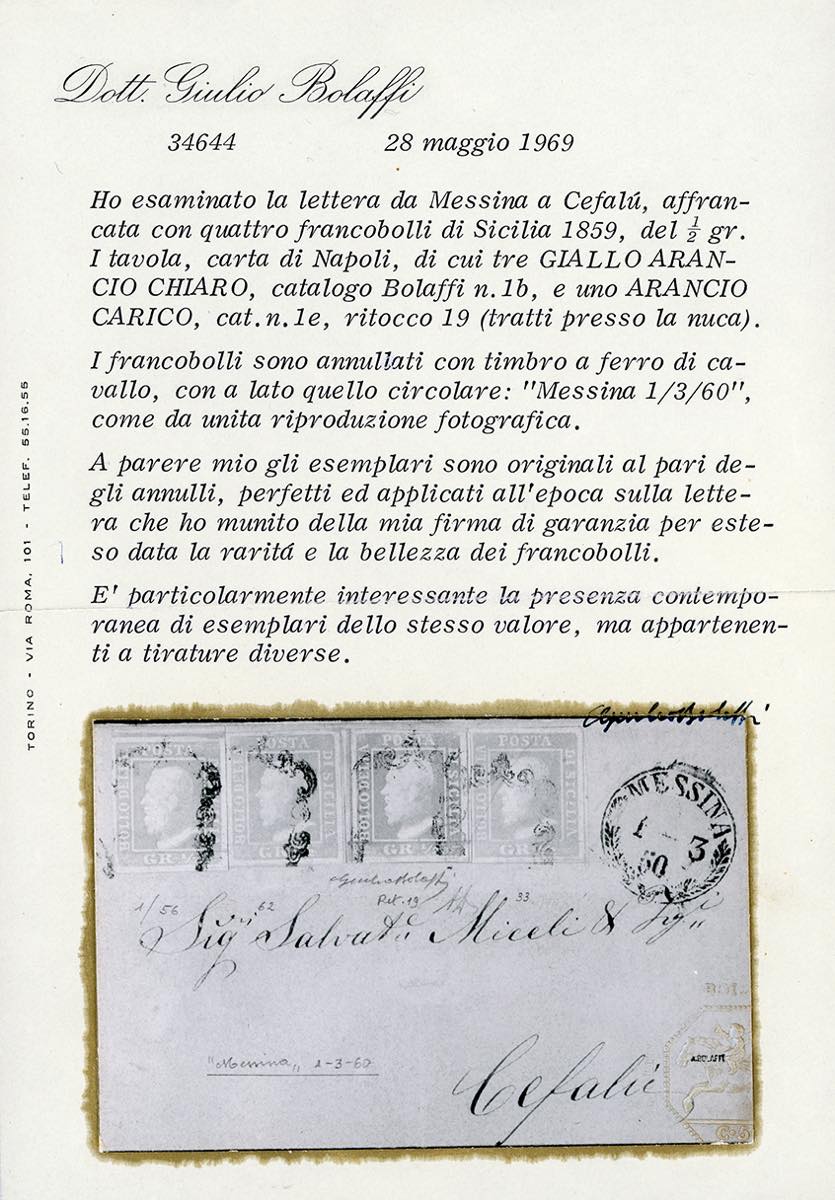 Dott. Giulio Bolaffi
34644 28 maggio 1969
Ho esaminato la lettera da Messina a Cefalú, affran-
cata con quattro francobolli di Sicilia 1859, del ½ gr.
I tavola, carta di Napoli, di cui tre GIALLO ARAN-
CIO CHIARO, catalogo Bolaffi n.1b, e uno ARANCIO
CARICO, cat.n.1e, ritocco 19 (tratti presso la nuca).
I francobolli sono annullati con timbro a ferro di ca-
vallo, con a lato quello circolare: "Messina 1/3/60",
come da unita riproduzione fotografica.
A parere mio gli esemplari sono originali al pari de-
gli annulli, perfetti ed applicati all'epoca sulla lette-
ra che ho munito della mia firma di garanzia per este-
so data la raritá e la bellezza dei francobolli.
E' particolarmente interessante la presenza contempo-
ranea di esemplari dello stesso valore, ma appartenen-
ti a tirature diverse.
TORINO - VIA ROMA, 101 - TELEF. 55.16.55
Giulio Bolaffi
BOLLO DELLA POSTA DI SICILIA GR. ½
BOLLO DELLA POSTA DI SICILIA GR. ½
BOLLO DELLA POSTA DI SICILIA GR. ½
BOLLO DELLA POSTA DI SICILIA GR. ½
MESSINA
1 - 3
60
Giulio Bolaffi
1/56 62 Rit. 19 33
Salvat Miceli &
"Messina" 1-3-60
Cefalù
A.BOLAFFI